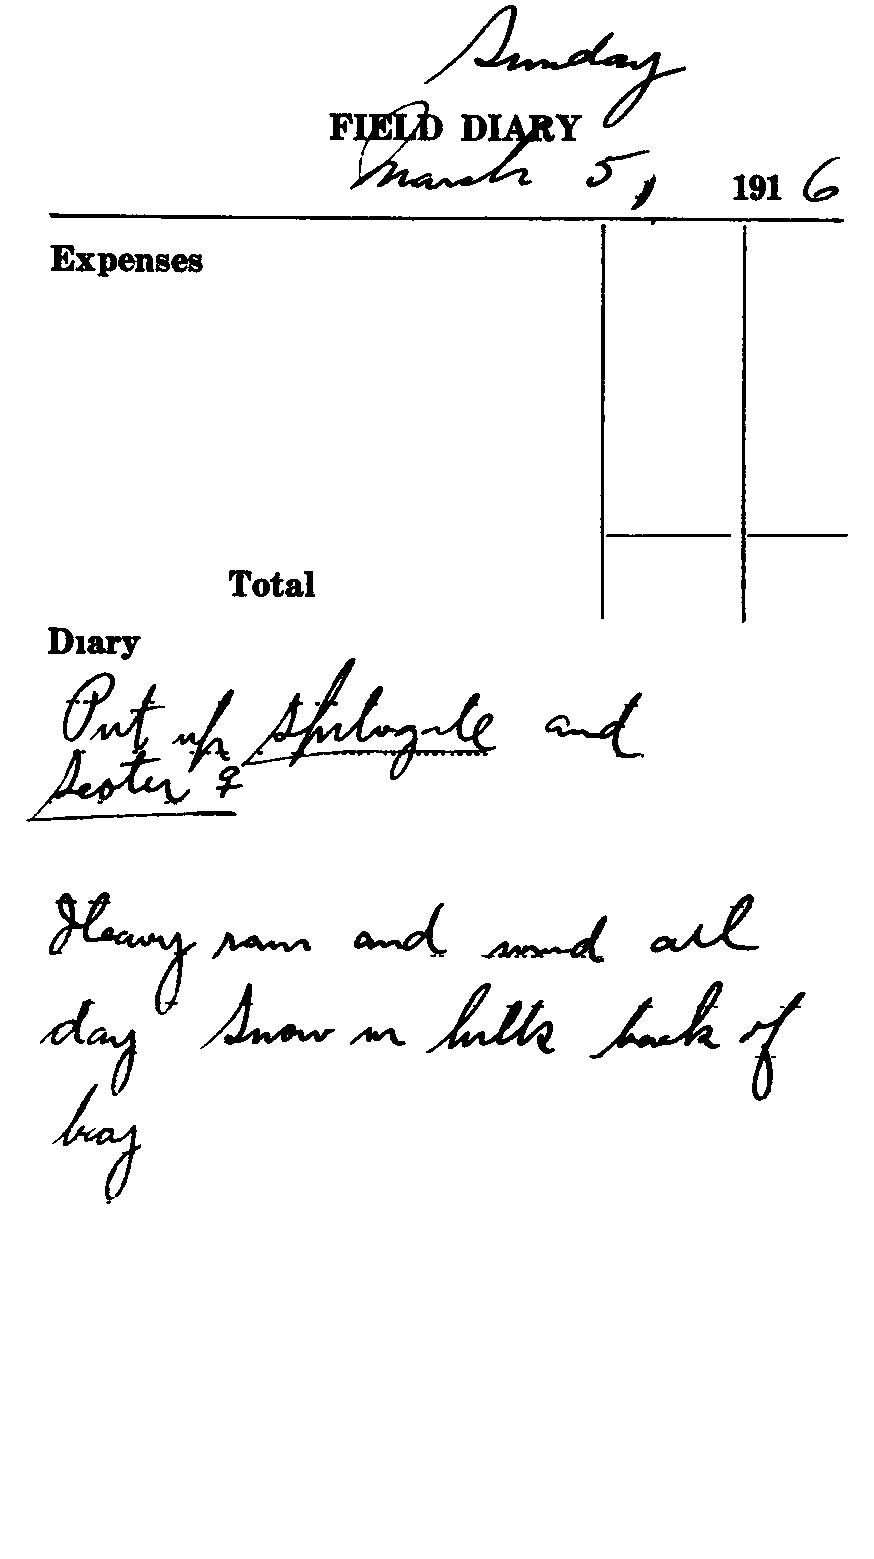 Sunday
FIELD DIARY
March 5, 1916
Expenses
Total
Diary
Put up Spilogale and
Scoter ♀
Heavy rain and wind all
day Snow in hills back of
bay